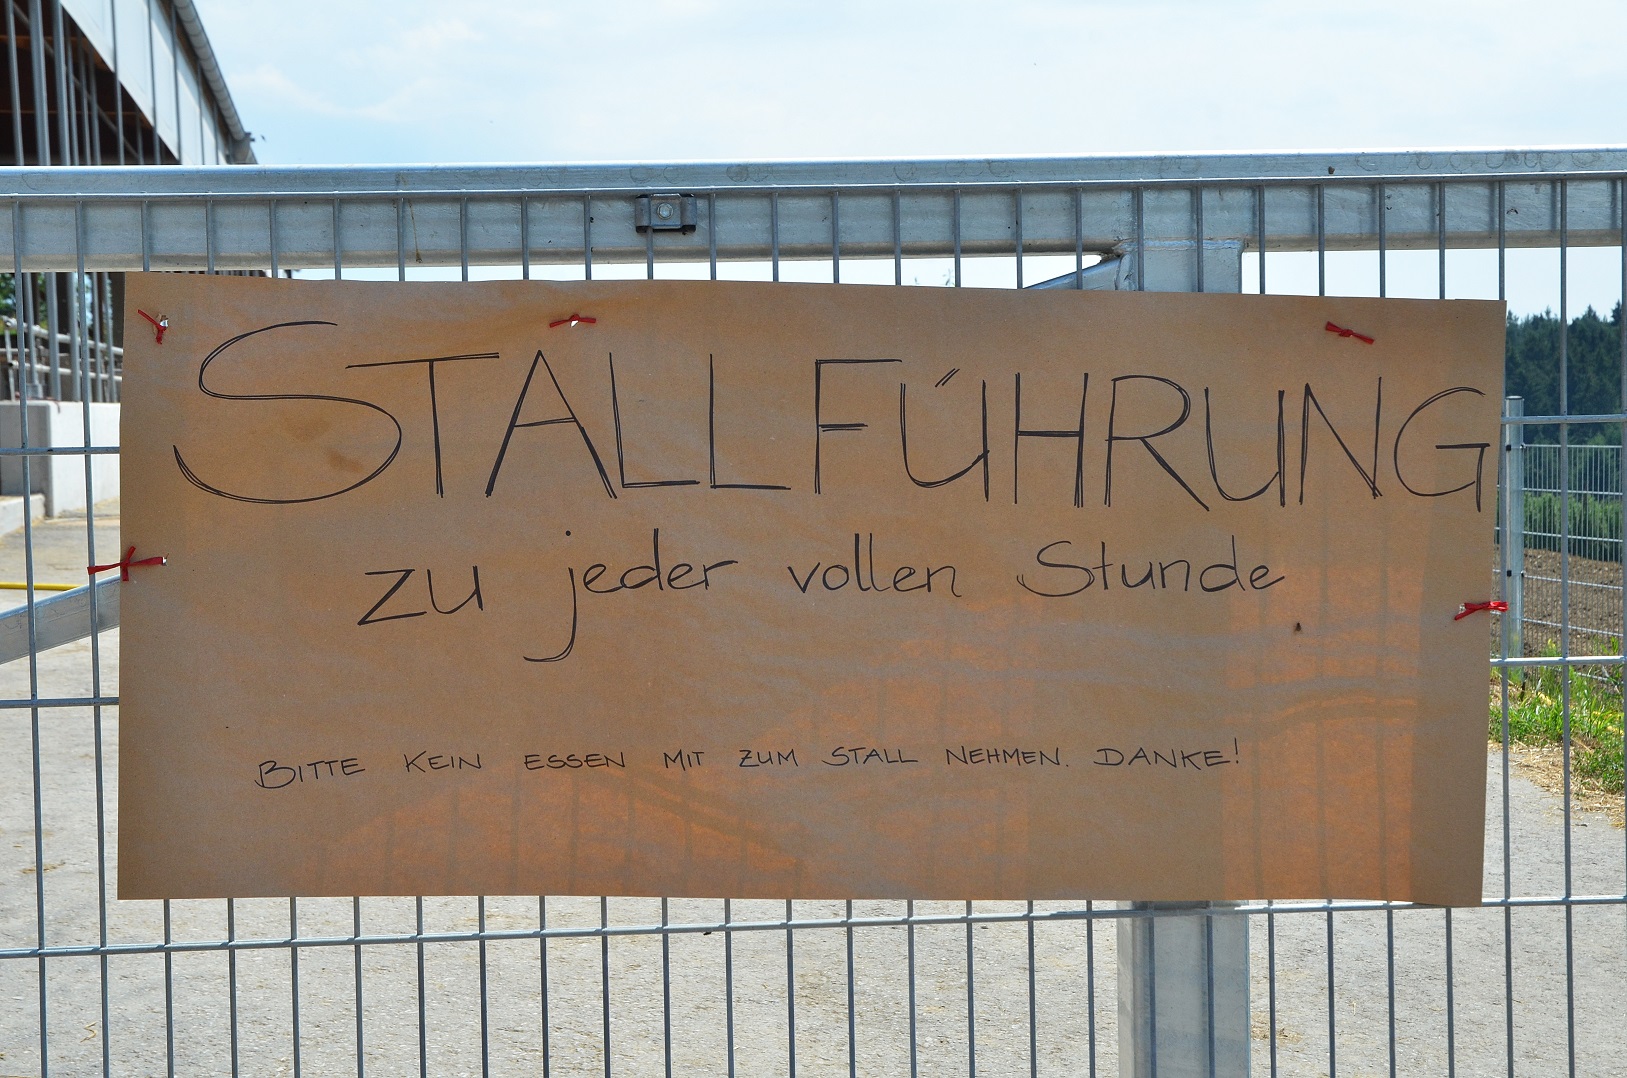 STALLFÜHRUNG
zu jeder vollen Stunde
BITTE KEIN ESSEN MIT ZUM STALL NEHMEN. DANKE!